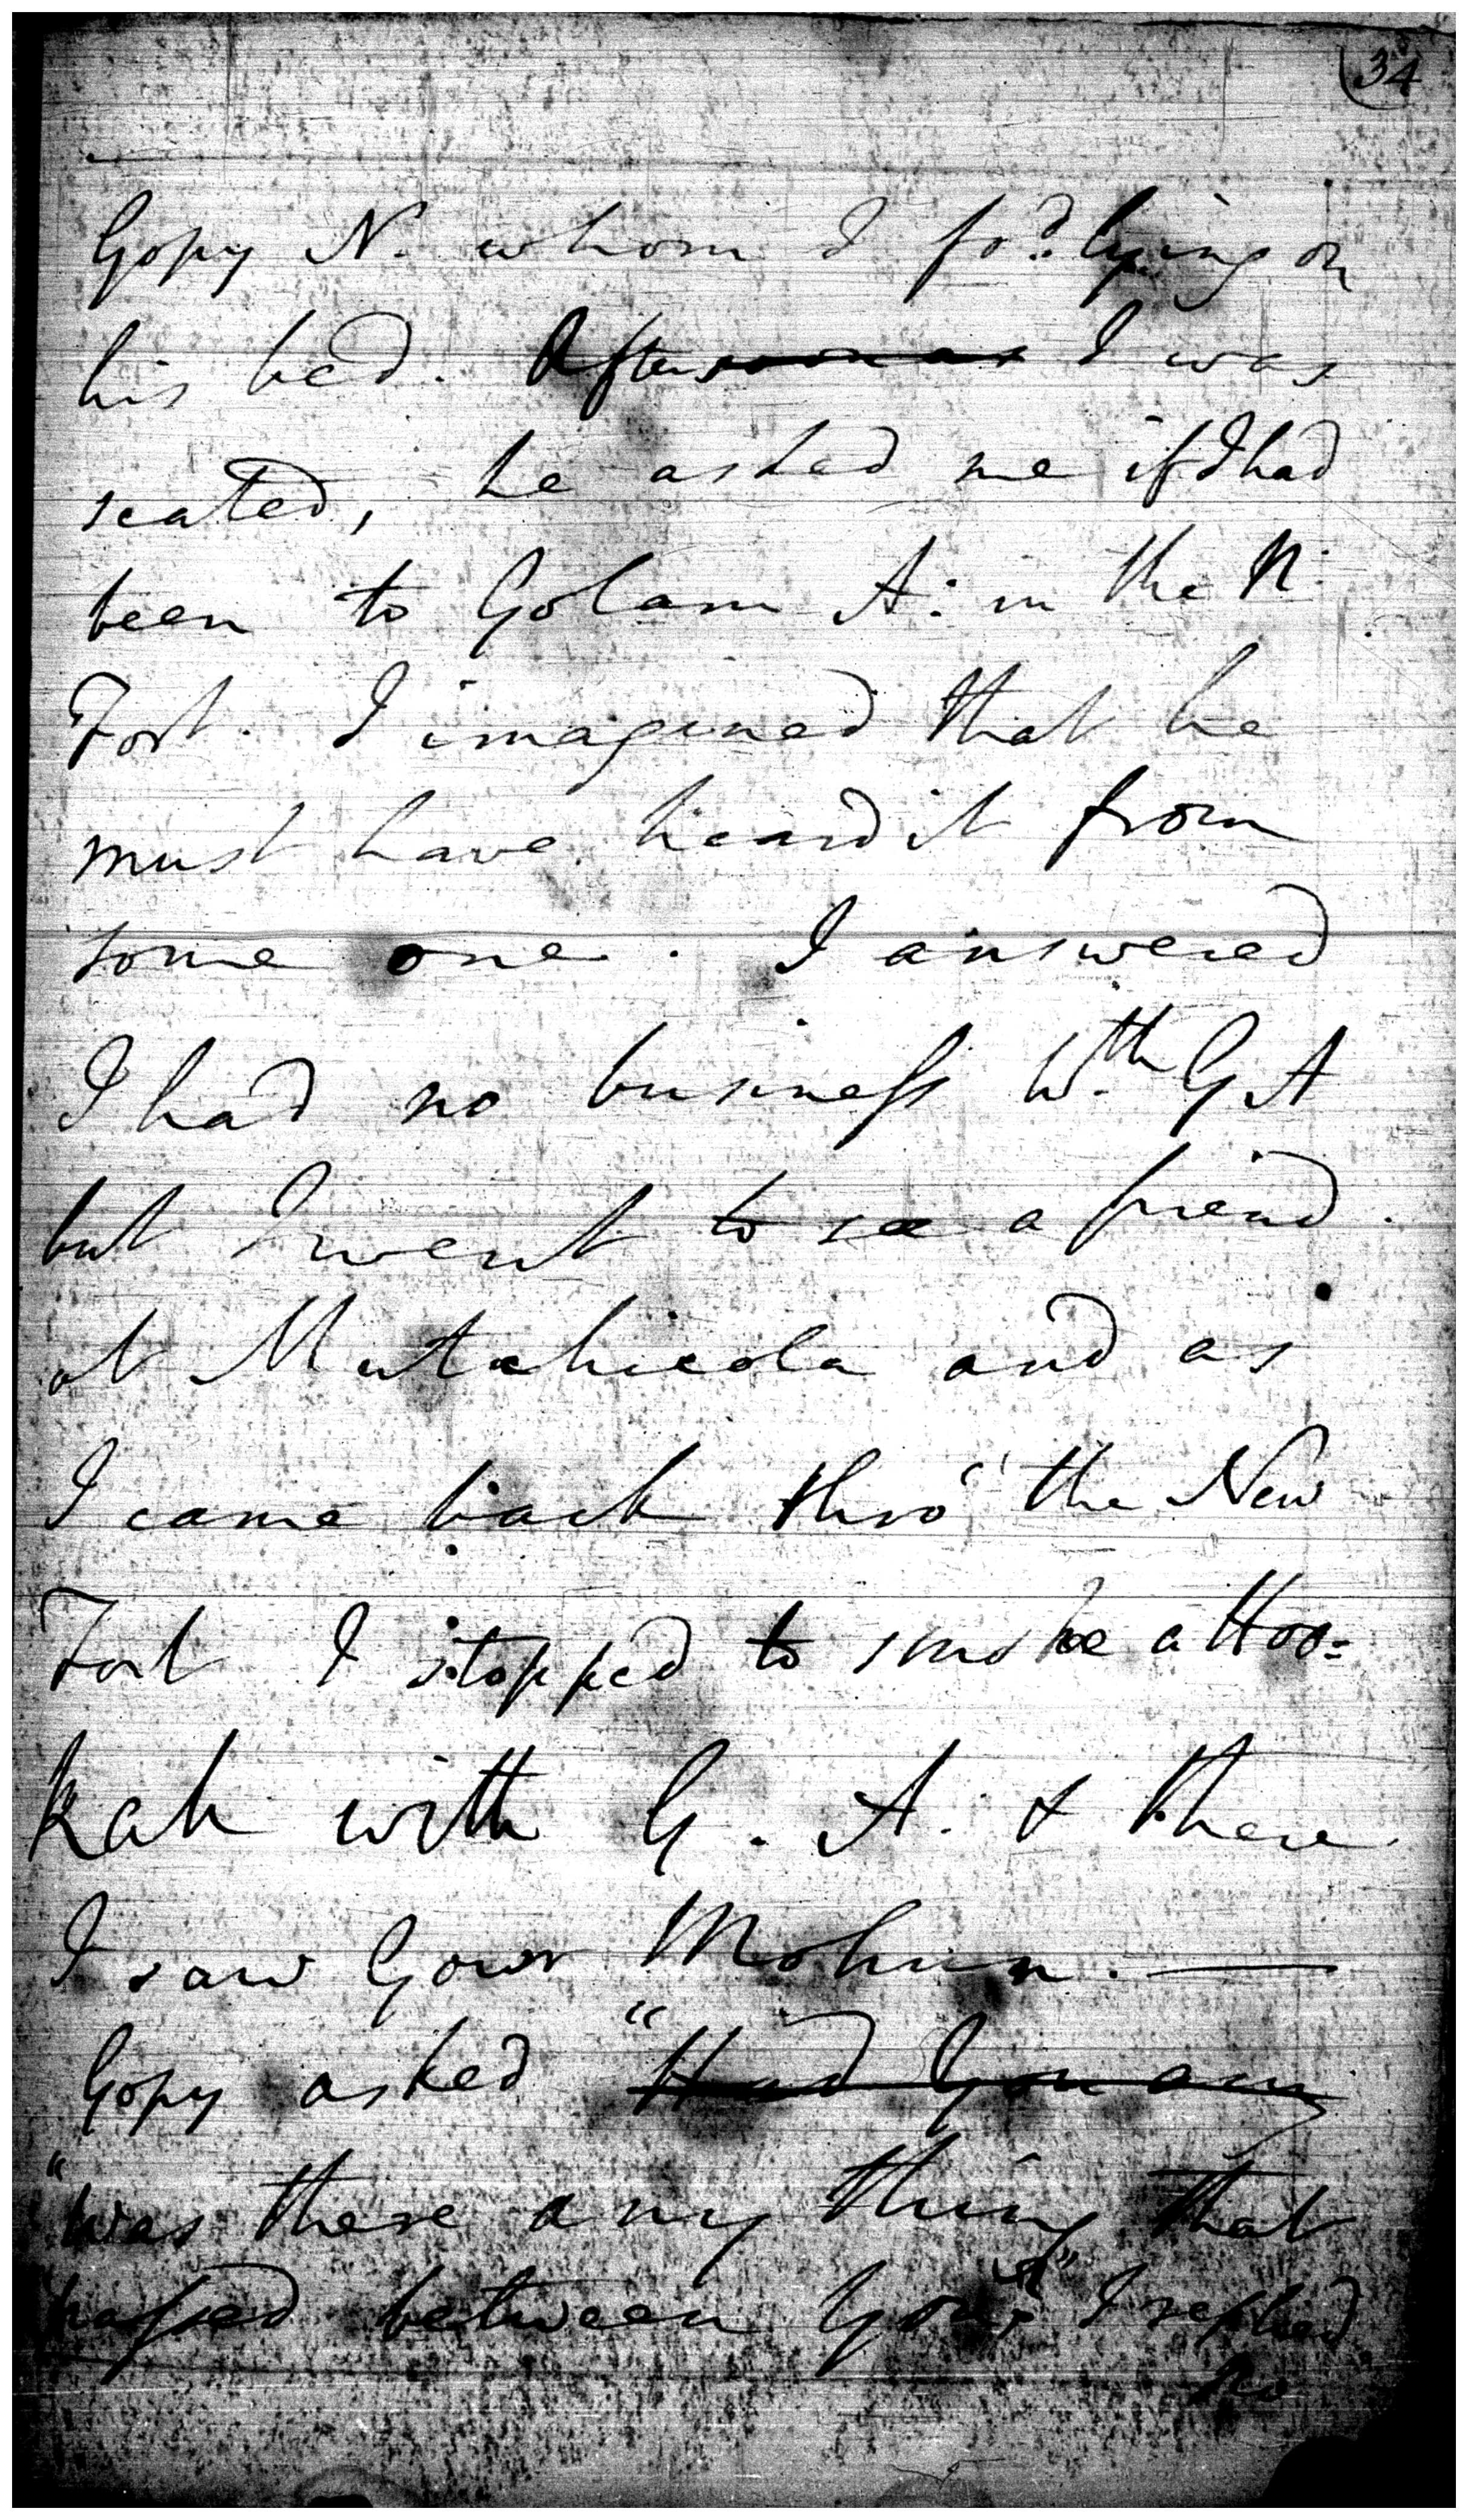 34
Gopy N. whom I fo.d lying on
his bed. After I was
seated, he asked me if I had
been to Golam A: in the N:
Fort. I imagined that he
must have heard it from
some one. I answered
I had no business W.th G A
but I went to see a friend.
at Mutahicola and as
I came back thro' the New
Fort I stopped to smoke a Hoo=
kah with G. A. & there
I saw Gowr Mohun. —
Gopy asked "Had you any
"Was there any thing that
passed between you?" I replied
No